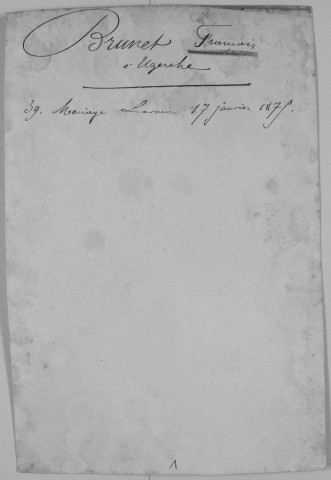 Brunet François
à Uzerche
39. Mariage Lavaur 17 janvier 1875.
1